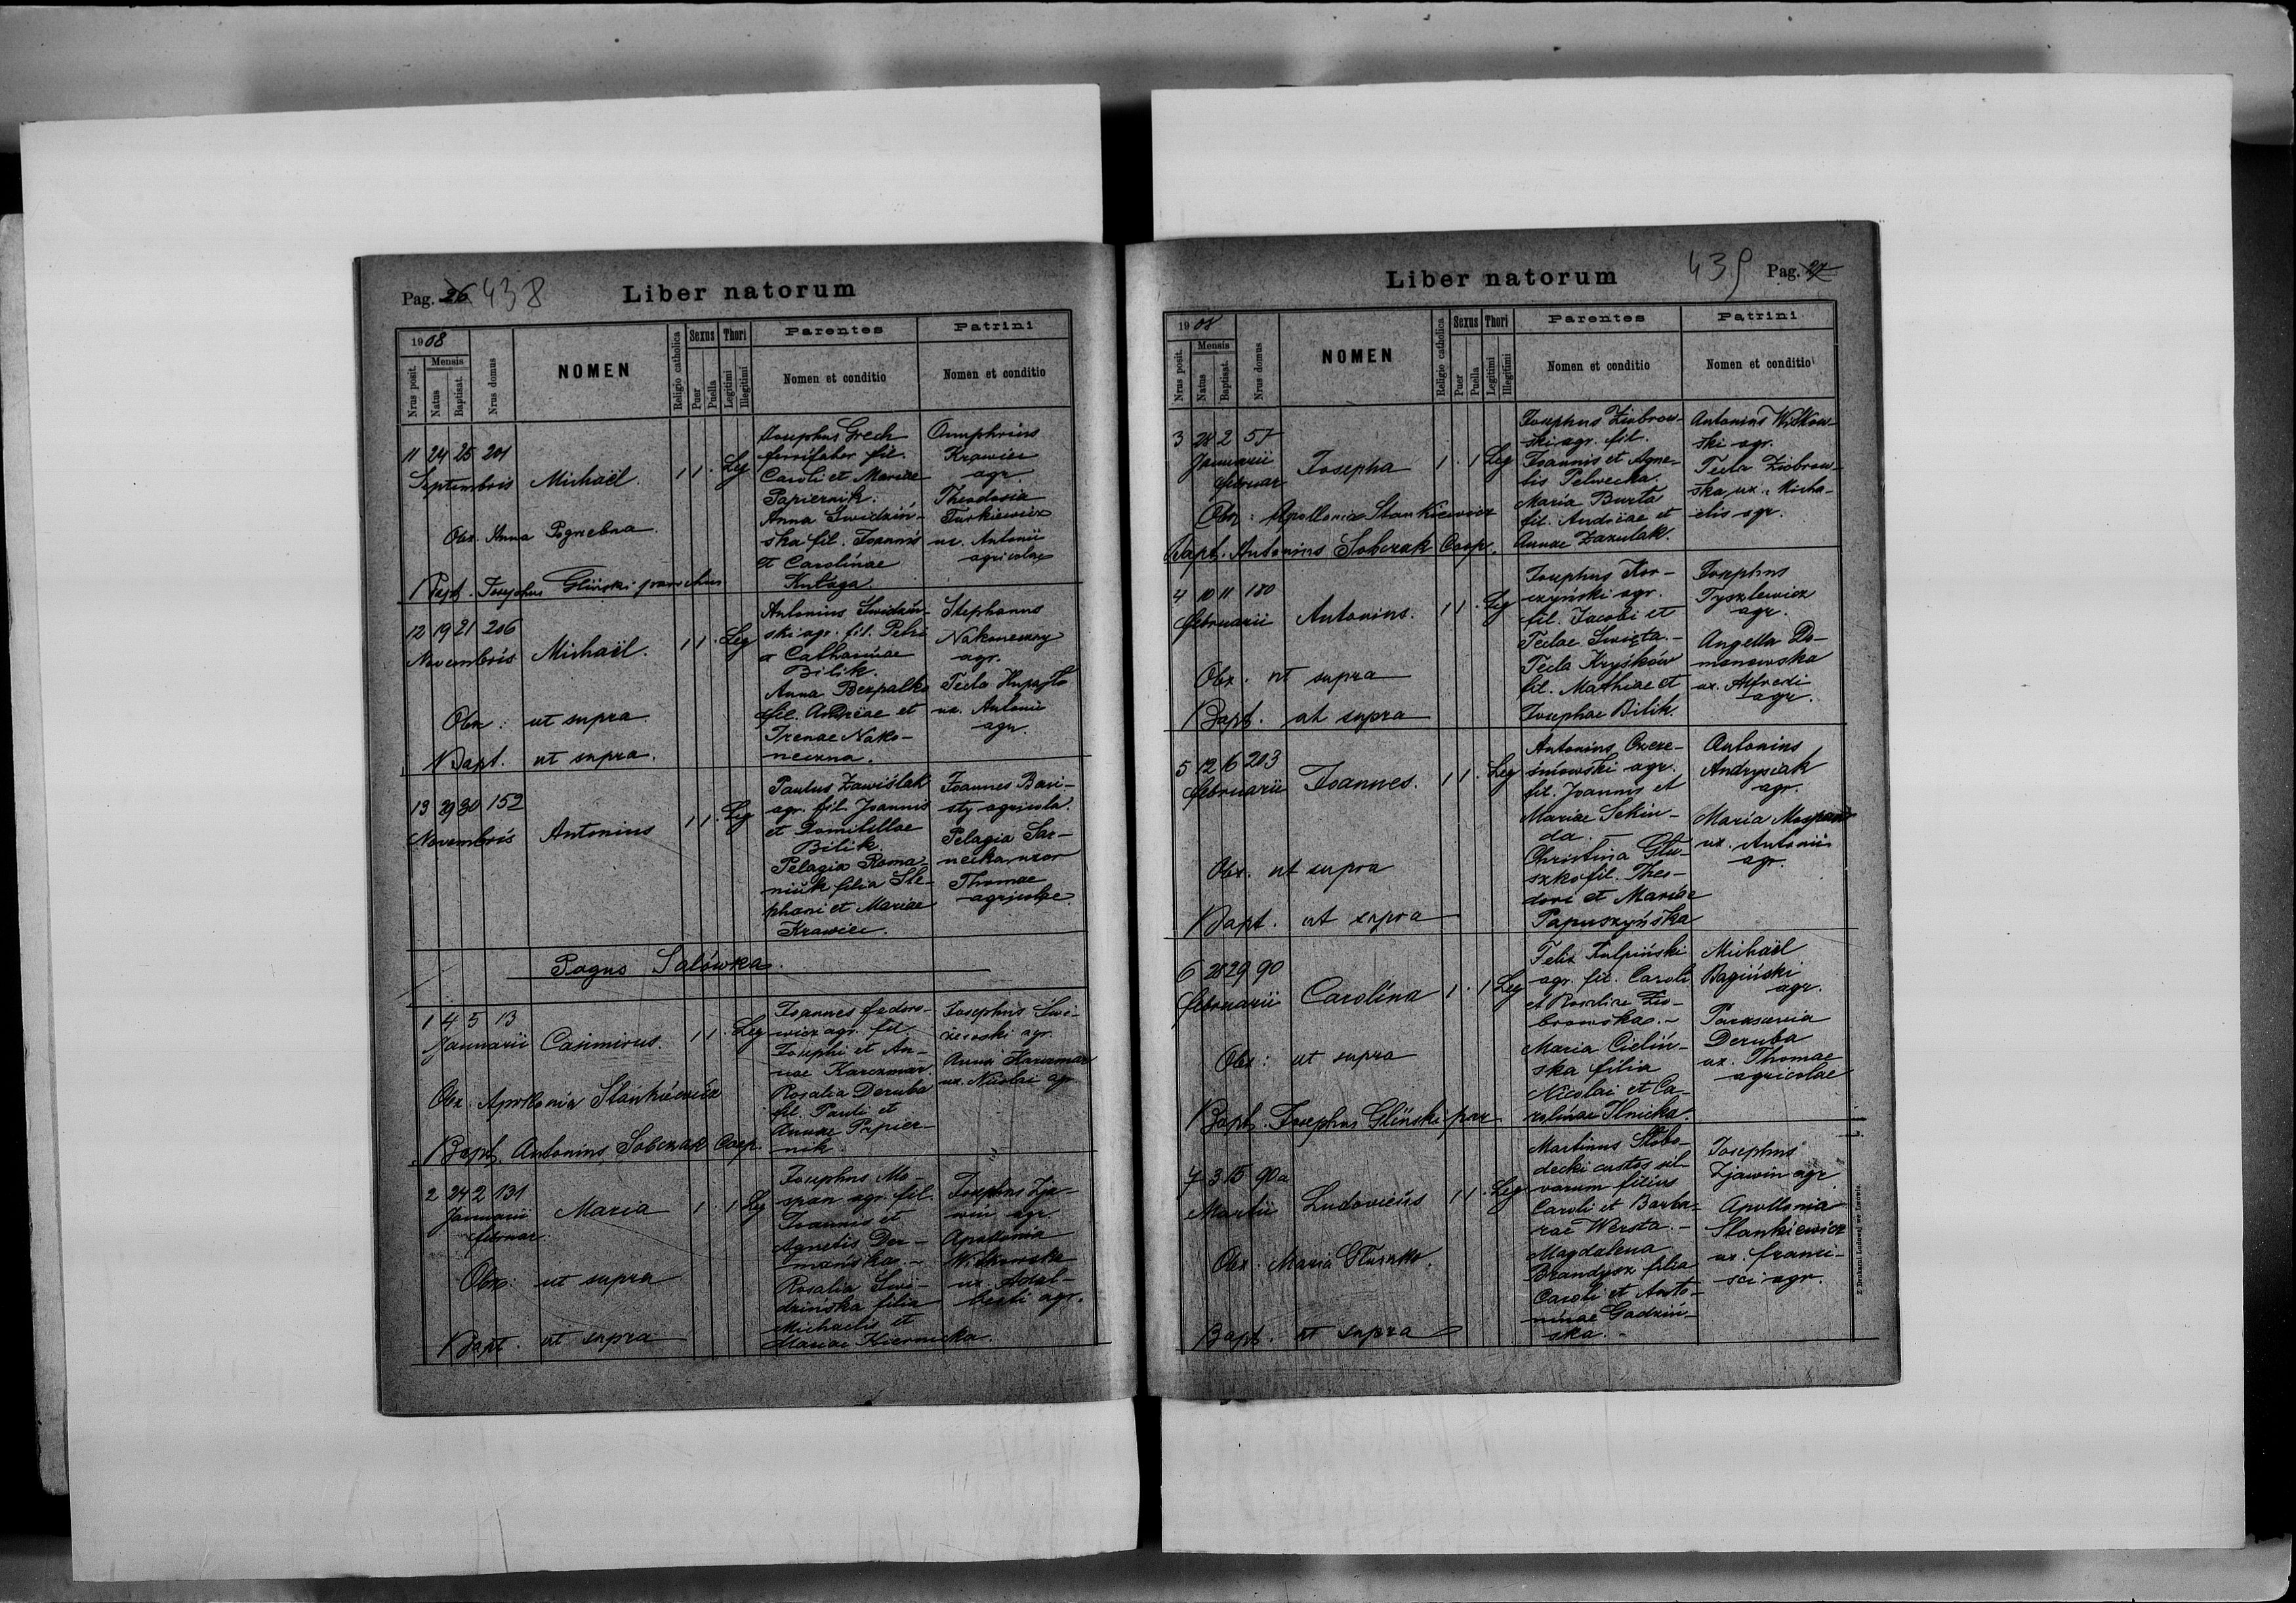 Pag. 26 438
Liber natorum
1908
Nrus posit.
Mensis
Natus
Baptisat.
Nrus domus
NOMEN
Religio catholica
Sexus
Puer
Puella
Thori
Legitimi
Illegitimi
Parentes
Nomen et conditio
Patrini
Nomen et conditio
11 24 25 201
Septembris
Michaël.
1 1 . Leg
Josephus Grech
ferrifaber fil.
Caroli et Mariae
Papiernik.
Anna Swidziń-
ska fil. Joannis
et Carolinae
Kutaga
Onuphrius
Krawiec
agr.
Theodosia
Turkiewicz
ux. Antonii
agricolae
Obx. Anna Pogrebna.
Bapt. Josephus Gliński parochus
12 19 21 206
Novembris
Michaël.
1 1 . Leg
Antonius Swidziń-
ski agr. fil. Petri
et Catharinae
Bilik.
Anna Bezpalko
fil. Andreae et
Irenae Nako-
neczna.
Stephanus
Nakoneczny
agr.
Tecla
ux. Antonii
agr.
Obx: ut supra.
Bapt. ut supra.
13 29 30 152
Novembris
Antonius
1 1 . Leg
Paulus Zawiślak
agr. fil. Joannis
et Domitillae
Bilik.
Pelagia Roma-
niuk filia Ste-
phani et Mariae
Krawiec.
Joannes Bari-
sty agricola.
Pelagia Sar-
necka uxor
Thomae
agricolae
Pagus Salówka.
1 4 5 13
Januarii
Casimirus.
1 1 . Leg
Joannes Fedoro-
wicz agr. fil.
Josephi et An-
nae Karczmar.
Rosalia Deruba
fil. Pauli et
Annae Papier-
nik.
Josephus Swi-
agr.
Anna Karczmar
ux. Nicolai agr.
Obx. Apollonia Stankiewicz
Bapt. Antonius Sobczak Coop.
2 24 2 131
Januarii
februar.
Maria
1 . 1 Leg
Josephus Mo-
span agr. fil.
Joannis et
Agnetis Der-
mańska. -
Rosalia Swi-
dzińska filia
Michaelis et
Mariae Kiernicka.
Josephus Zja-
win agr.
Apollonia
Witkowska
ux. Adal-
berti agr.
Obx: ut supra
Bapt. ut supra
Liber natorum
439 Pag. 27
1908
Nrus posit.
Mensis
Natus
Baptisat.
Nrus domus
NOMEN
Religio catholica
Sexus
Puer
Puella
Thori
Legitimi
Illegitimi
Parentes
Nomen et conditio
Patrini
Nomen et conditio
3 28 2 57
Januarii
februar
Josepha
1 . 1 Leg
Josephus Ziobrow-
ski agr. fil.
Joannis et Agne-
tis Pelwecka.
Maria Burta
fil. Andreae et
Annae Zazulak.
Antonius Witkow-
ski agr.
Tecla Ziobrow-
ska ux. Micha-
elis agr.
Obx: Apollonia Stankiewicz
Bapt. Antonius Sobczak Coop.
4 10 11 180
februarii
Antonius.
1 1 . Leg
Josephus Kor-
czyński agr.
fil. Jacobi et
Teclae Swięta. -
Tecla Kryśków
fil. Mathiae et
Josephae Bilik.
Josephus
Tyszlewicz
agr.
Angella Do-
manowska
ux. Alfredi
agr.
Obx. ut supra
Bapt. ut supra
5 12 16 203
februarii
Joannes.
1 1 . Leg
Antonius Czere-
śniowski agr.
fil. Joannis et
Mariae Sekun-
da. -
Christina Glu-
szko fil. Theo-
dori et Mariae
Papuszyńska
Antonius
Andrysiak
agr.
Maria
ux. Antonii
agr.
Obx. ut supra
Bapt. ut supra
6 28 29 90
februarii
Carolina
1 . 1 Leg
Felix Kulpiński
agr. fil. Caroli
et Rosaliae Zio-
browska. -
Maria Cieliń-
ska filia
Nicolai et Ca-
rolinae Ilnicka.
Michaël
Bagiński
agr.
Parasceria
Deruba
ux. Thomae
agricolae
Obx: ut supra
Bapt. Josephus Gliński par
7 3 15 90a
Martii
Ludovicus
1 1 . Leg
Martinus Słobo-
decki custos sil-
varum filius
Caroli et Barba-
rae Wersta. -
Magdalena
Brandysz filia
Caroli et Anto-
ninae Gadziń-
ska. -
Josephus
Zjawin agr.
Apollonia
Stankiewicz
ux. Franci-
sci agr.
Obx. Maria Głuszko.
Bapt. ut supra
Z Drukarni Ludowej we Lwowie.